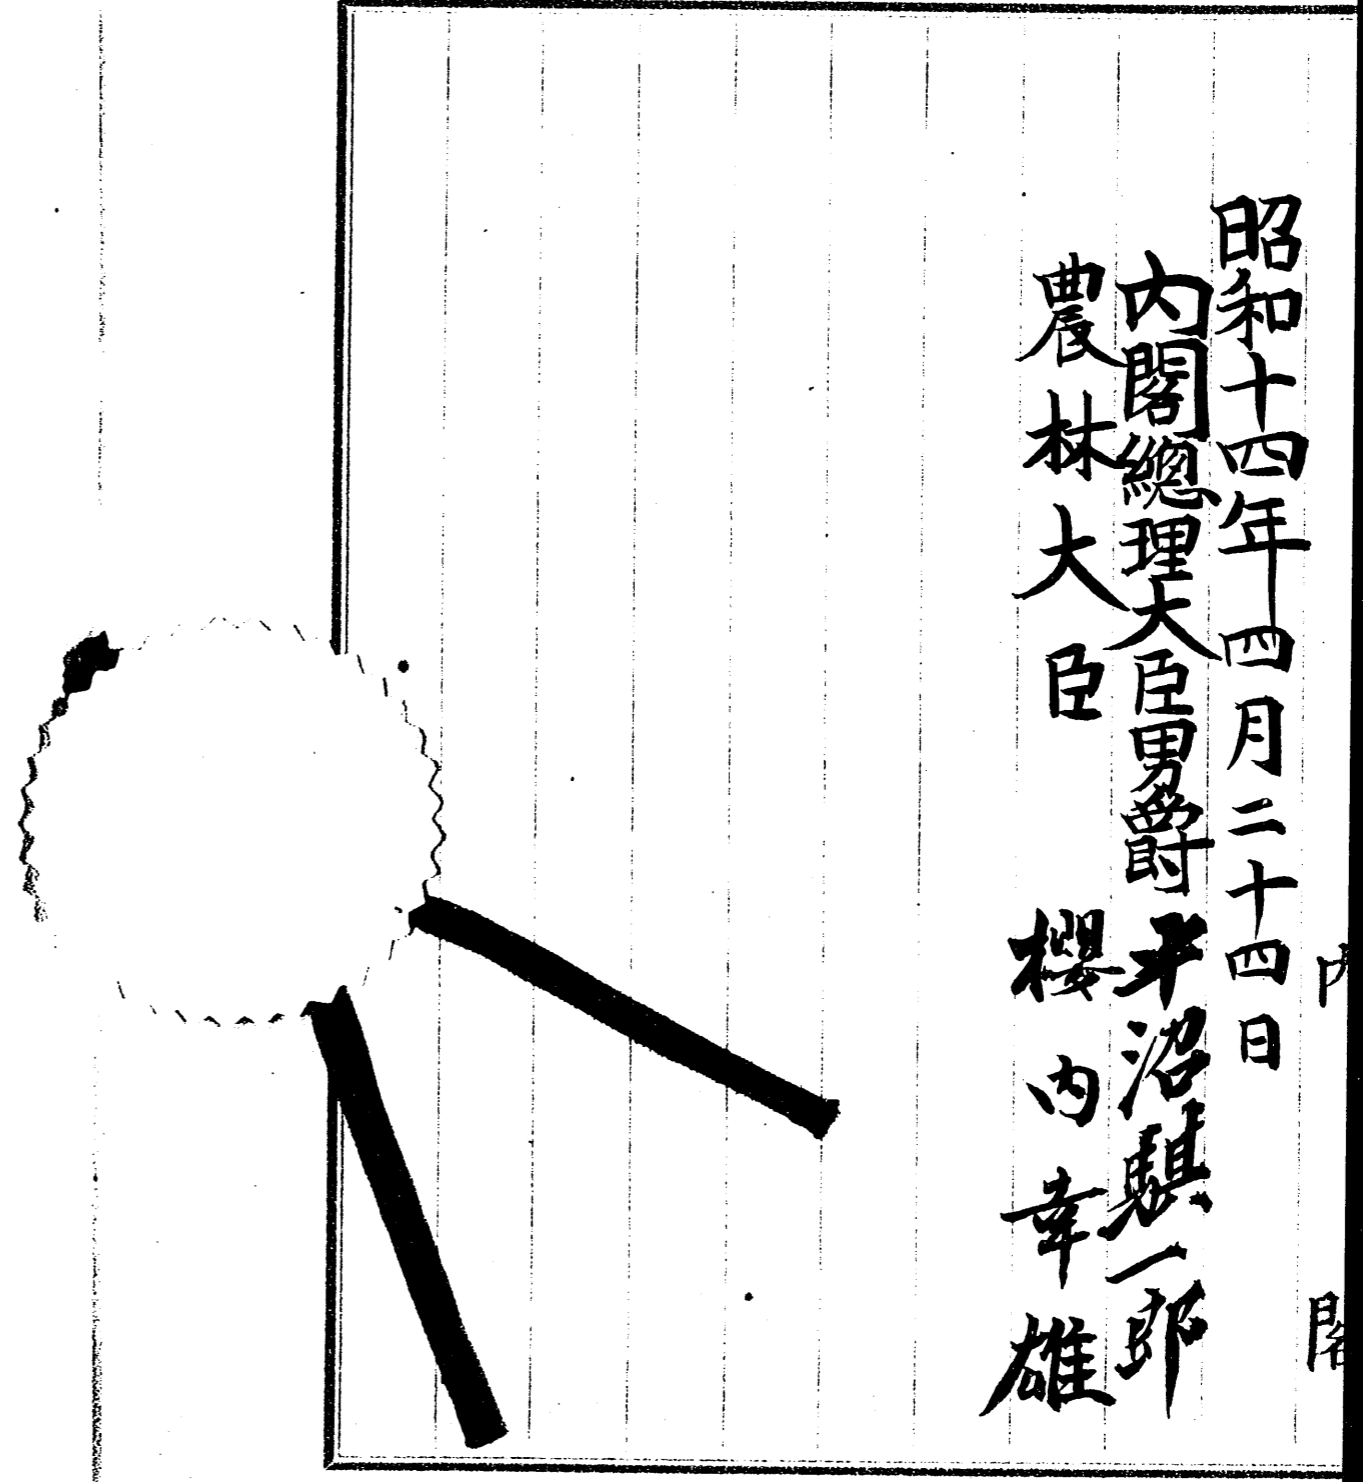 昭和十四年四月二十四日
內閣總理大臣男爵平沼騏一郎
農林大臣 櫻內幸雄
內閣